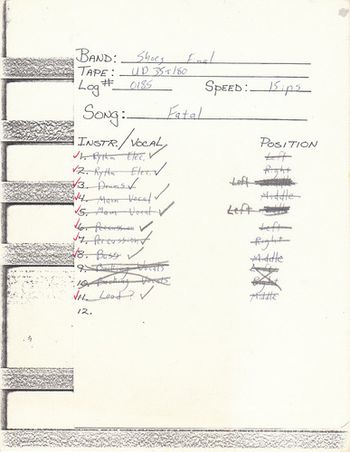 BAND: Shoes Final
TAPE: UD 35-180
LOG# 0185 SPEED: 15 ips
SONG: Fatal
INSTR./VOCAL POSITION
1. Rythm Elec. Left
2. Rythm Elec. Right
3. Drums Left
4. Main Vocal Middle
5. Main Vocal Left
6. Percussion Left
7. Percussion Right
8. Bass Middle
9. Backing Vocals
10. Backing Vocals
11. Lead? Middle
12.